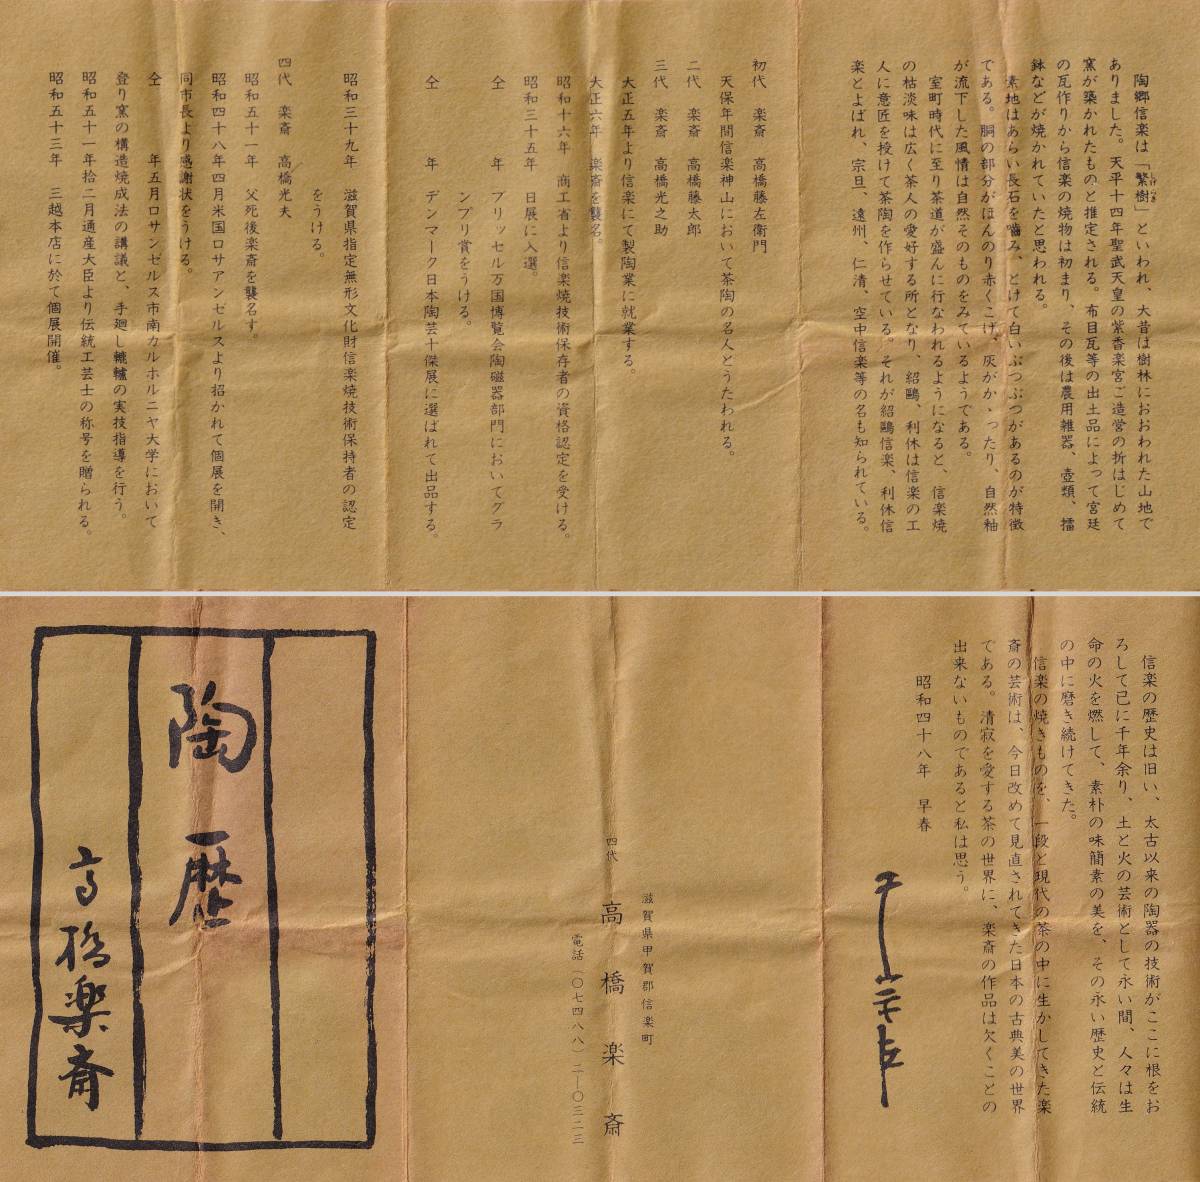 陶郷信楽は「繁樹」といわれ、大昔は樹林におおわれた山地で
ありました。天平十四年聖武天皇の紫香楽宮ご造営の折はじめて
窯が築かれたものと推定される。布目瓦等の出土品によって宮廷
の瓦作りから信楽の焼物は初まり、その後は農用雑器、壺類、擂
鉢などが焼かれていたと思われる。
素地はあらい長石を噛み、とけて白いぶつぶつがあるのが特徴
である。胴の部分がほんのり赤くこげ、灰がかゝったり、自然釉
が流下した風情は自然そのものをみているようである。
室町時代に至り茶道が盛んに行なわれるようになると、信楽焼
の枯淡味は広く茶人の愛好する所となり、紹鷗、利休は信楽の工
人に意匠を授けて茶陶を作らせている。それが紹鷗信楽、利休信
楽とよばれ、宗旦、遠州、仁清、空中信楽等の名も知られている。
初代 楽斎 高橋藤左衛門
天保年間信楽神山において茶陶の名人とうたわれる。
二代 楽斎 高橋藤太郎
三代 楽斎 高橋光之助
大正五年より信楽にて製陶業に就業する。
大正六年 楽斎を襲名。
昭和十六年 商工省より信楽焼技術保存者の資格認定を受ける。
昭和三十五年 日展に入選。
仝 年 ブリッセル万国博覧会陶磁器部門においてグラ
ンプリ賞をうける。
仝 年 デンマーク日本陶芸十傑展に選ばれて出品する。
昭和三十九年 滋賀県指定無形文化財信楽焼技術保持者の認定
をうける。
四代 楽斎 高橋光夫
昭和五十一年 父死後楽斎を襲名す。
昭和四十八年四月米国ロサアンゼルスより招かれて個展を開き、
同市長より感謝状をうける。
仝 年五月ロサンゼルス市南カルホルニヤ大学において
登り窯の構造焼成法の講議と、手廻し轆轤の実技指導を行う。
昭和五十一年拾二月通産大臣より伝統工芸士の称号を贈られる。
昭和五十三年 三越本店に於て個展開催。
信楽の歴史は旧い、太古以来の陶器の技術がここに根をお
ろして已に千年余り、土と火の芸術として永い間、人々は生
命の火を燃して、素朴の味簡素の美を、その永い歴史と伝統
の中に磨き続けてきた。
信楽の焼きものを、一段と現代の茶の中に生かしてきた楽
斎の芸術は、今日改めて見直されてきた日本の古典美の世界
である。清寂を愛する茶の世界に、楽斎の作品は欠くことの
出来ないものであると私は思う。
昭和四十八年 早春
滋賀県甲賀郡信楽町
四代 高橋楽斎
電話(〇七四八八)二―〇三二三
陶歴
高橋楽斎